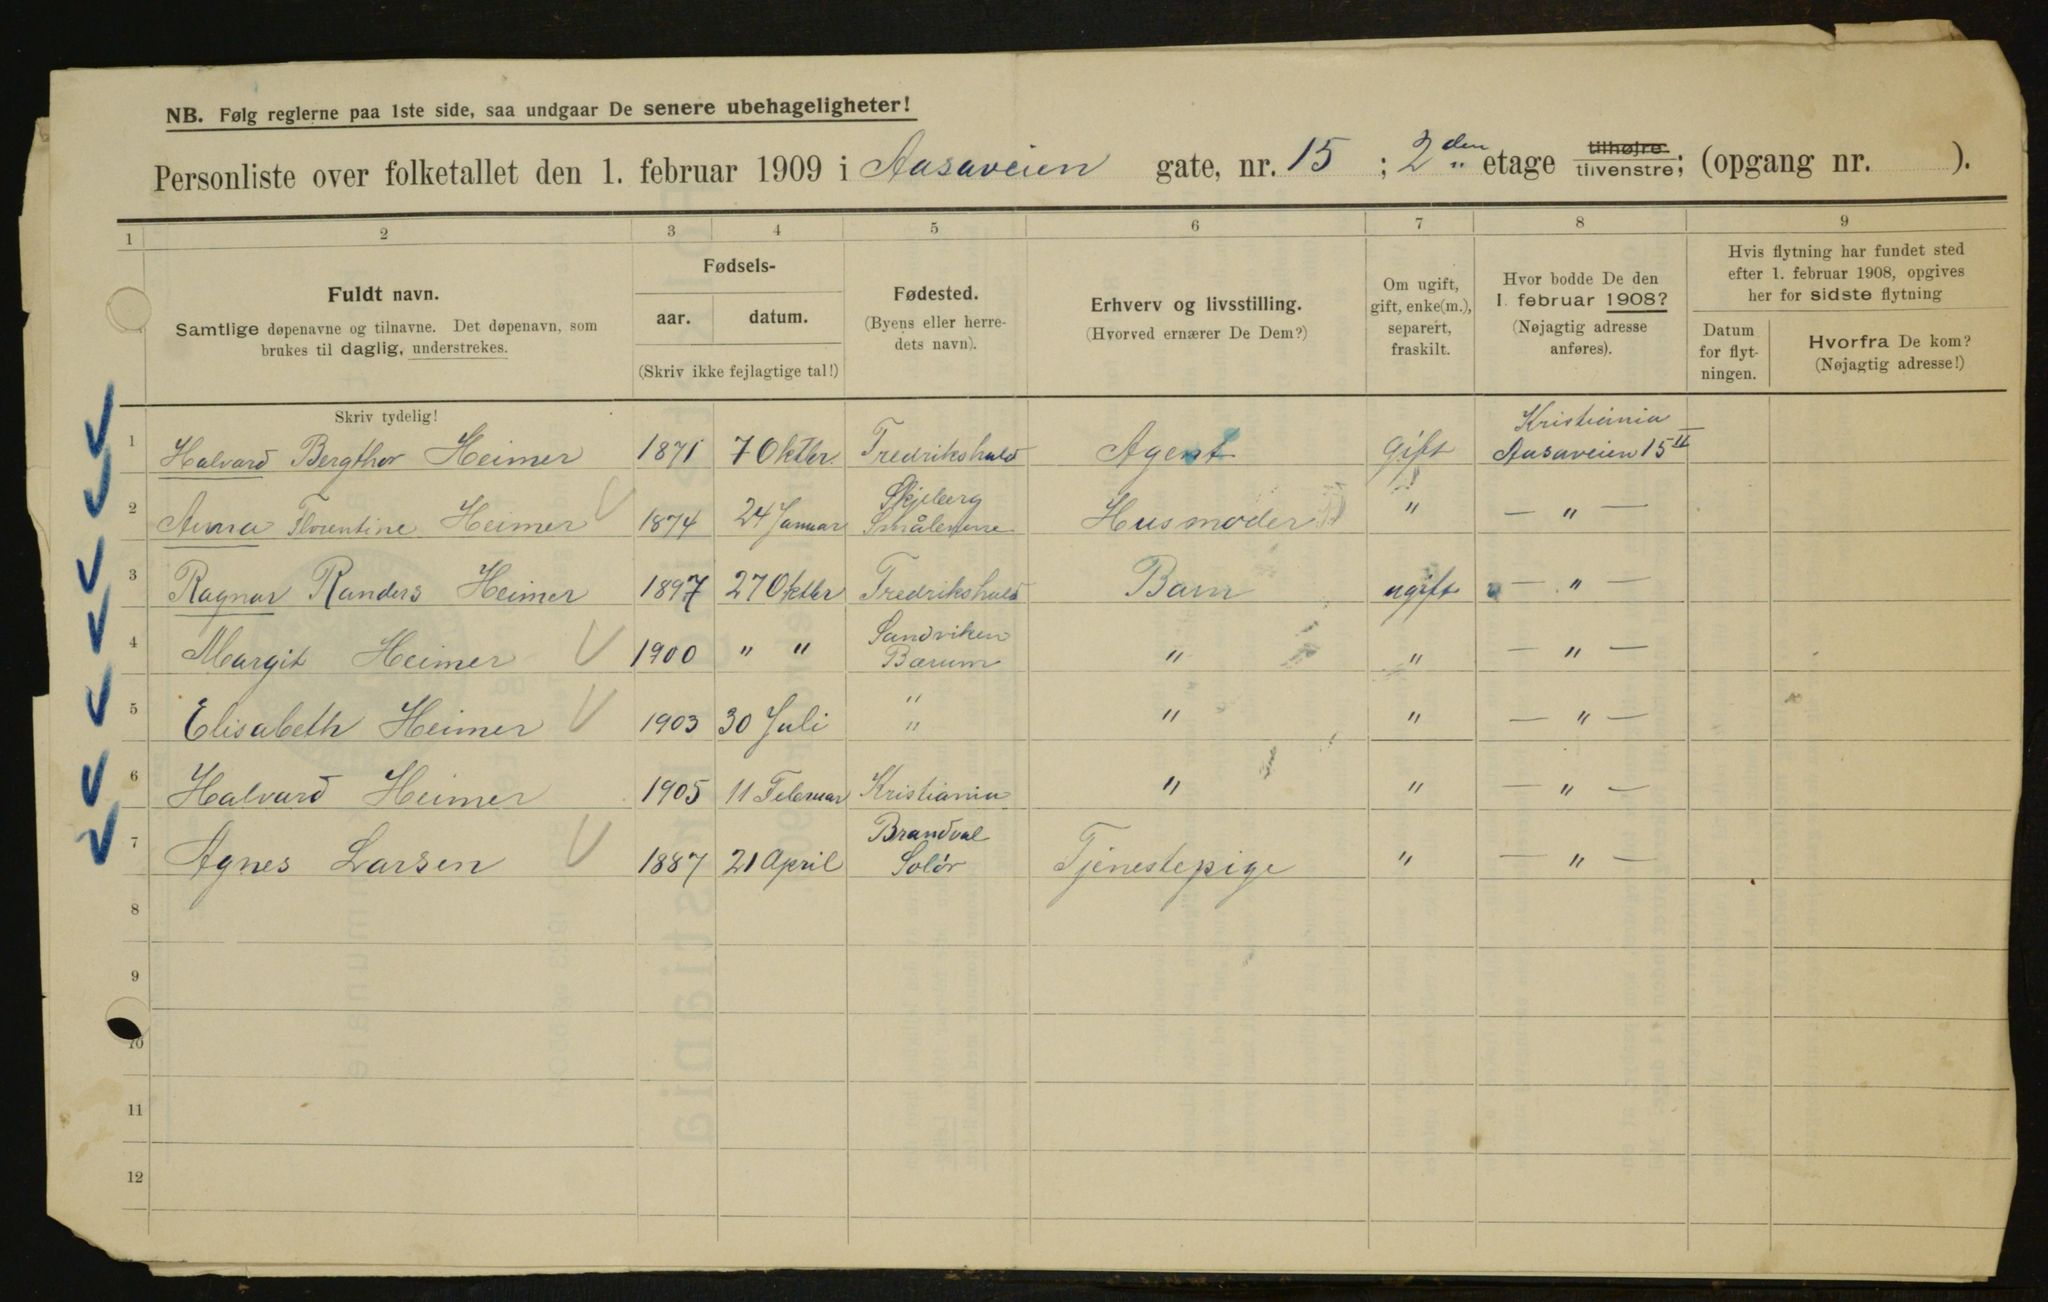 NB. Følg reglerne paa 1ste side, saa undgaar De senere ubehageligheter!
Personliste over folketallet den 1. februar 1909 i Aasaveien gate, nr. 15 ; 2den etage tilhøjre tilvenstre; (opgang nr. ).
1 2 3 4 5 6 7 8 9
Fuldt navn.
Samtlige døpenavne og tilnavne. Det døpenavn, som
brukes til daglig, understrekes.
Fødsels-
aar. datum.
(Skriv ikke fejlagtige tal!)
Fødested.
(Byens eller herre-
dets navn).
Erhverv og livsstilling.
(Hvorved ernærer De Dem?)
Om ugift,
gift, enke(m.),
separert,
fraskilt.
Hvor bodde De den
1. februar 1908?
(Nøjagtig adresse
anføres).
Hvis flytning har fundet sted
efter 1. februar 1908, opgives
her for sidste flytning
Datum
for flyt-
ningen.
Hvorfra De kom?
(Nøjagtig adresse!)
Skriv tydelig!
1 Halvard Bergthor Heimer 1871 7 Oktbr. Fredrikshald Agent Gift Kristiania
Aasaveien 15 II
2 Anna Florentine Heimer 1874 24 Januar Skjeberg
Smålenene Husmoder " — " —
3 Ragnar Randers Heimer 1897 27 Oktbr Fredrikshald Barn ugift — " —
4 Margit Heimer 1900 " " Sandviken
Bærum " " — " —
5 Elisabeth Heimer 1903 30 Juli "
" " " — " —
6 Halvard Heimer 1905 11 Februar Kristiania " " — " —
7 Agnes Larsen 1887 21 April Brandval
Solør Tjenestepige " — " —
8
9
10
11
12